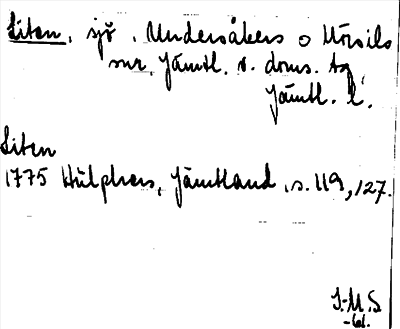 Liten, sjö, Undersåkers o Mörsils
snr, Jämtl. v. doms. tg,
Jämtl. l.
Liten
1775 Hülphers, Jämtland, s. 119, 127.
I-M.S
-61.